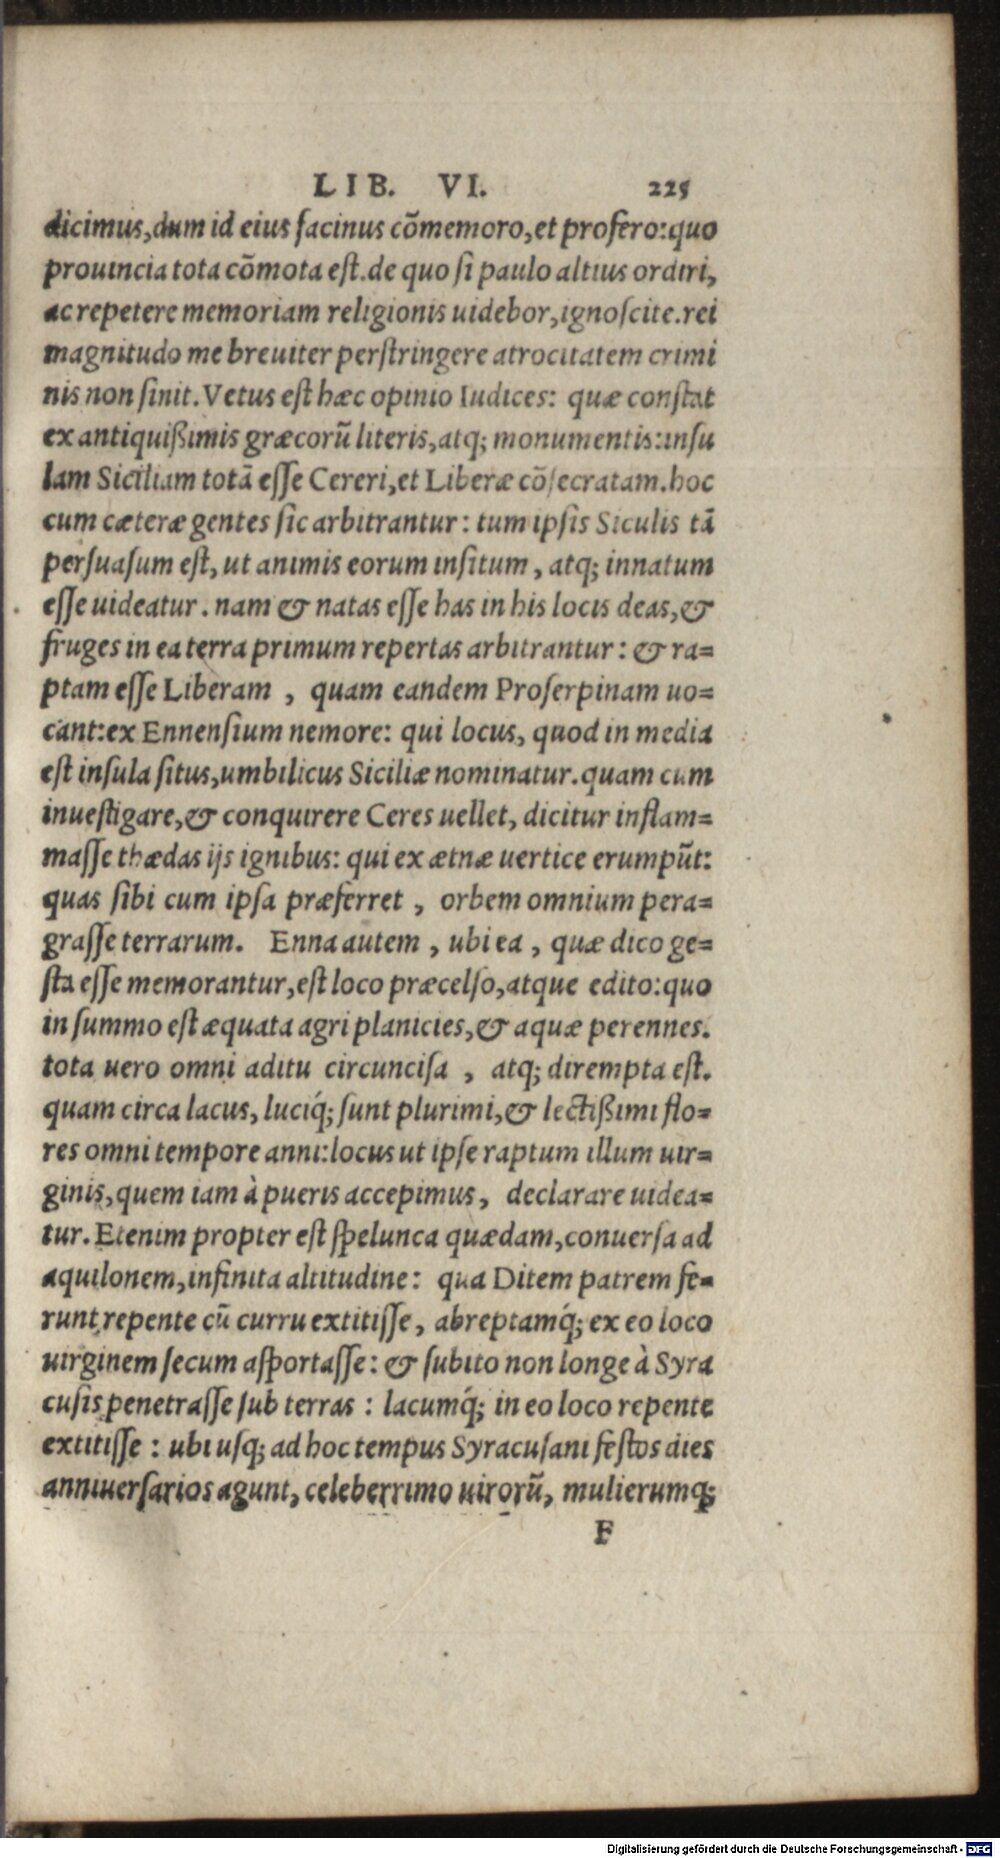 LIB. VI. 225
dicimus,dum id eius facinus cõmemoro,et profero:quo
prouincia tota cõmota est.de quo si paulo altius ordiri,
ac repetere memoriam religionis uidebor,ignoscite.rei
magnitudo me breuiter perstringere atrocitatem crimi
nis non sinit.Vetus est hæc opinio Iudices: quæ constat
ex antiquißimis græcorũ literis,atq; monumentis:insu
lam Siciliam totã esse Cereri,et Liberæ cõsecratam.hoc
cum cæteræ gentes sic arbitrantur: tum ipsis Siculis tã
persuasum est, ut animis eorum insitum, atq; innatum
esse uideatur. nam & natas esse has in his locis deas,&
fruges in ea terra primum repertas arbitrantur: & ra=
ptam esse Liberam, quam eandem Proserpinam uo=
cant:ex Ennensium nemore: qui locus, quod in media
est insula situs,umbilicus Siciliæ nominatur.quam cum
inuestigare,& conquirere Ceres uellet, dicitur inflam=
masse thædas ijs ignibus: qui ex ætnæ uertice erumpũt:
quas sibi cum ipsa præferret, orbem omnium pera=
grasse terrarum. Enna autem, ubi ea, quæ dico ge=
sta esse memorantur,est loco præcelso,atque edito:quo
in summo est æquata agri planicies,& aquæ perennes.
tota uero omni aditu circuncisa, atq; dirempta est.
quam circa lacus, luciq́; sunt plurimi,& lectißimi flo=
res omni tempore anni:locus ut ipse raptum illum uir=
ginis,quem iam à pueris accepimus, declarare uidea=
tur. Etenim propter est spelunca quædam,conuersa ad
aquilonem,infinita altitudine: qua Ditem patrem fe=
runt repente cũ curru extitisse, abreptamq́; ex eo loco
uirginem secum asportasse: & subito non longe à Syra
cusis penetrasse sub terras: lacumq́; in eo loco repente
extitisse: ubi usq; ad hoc tempus Syracusani festos dies
anniuersarios agunt, celeberrimo uirorũ, mulierumq;
F
Digitalisierung gefördert durch die Deutsche Forschungsgemeinschaft - DFG